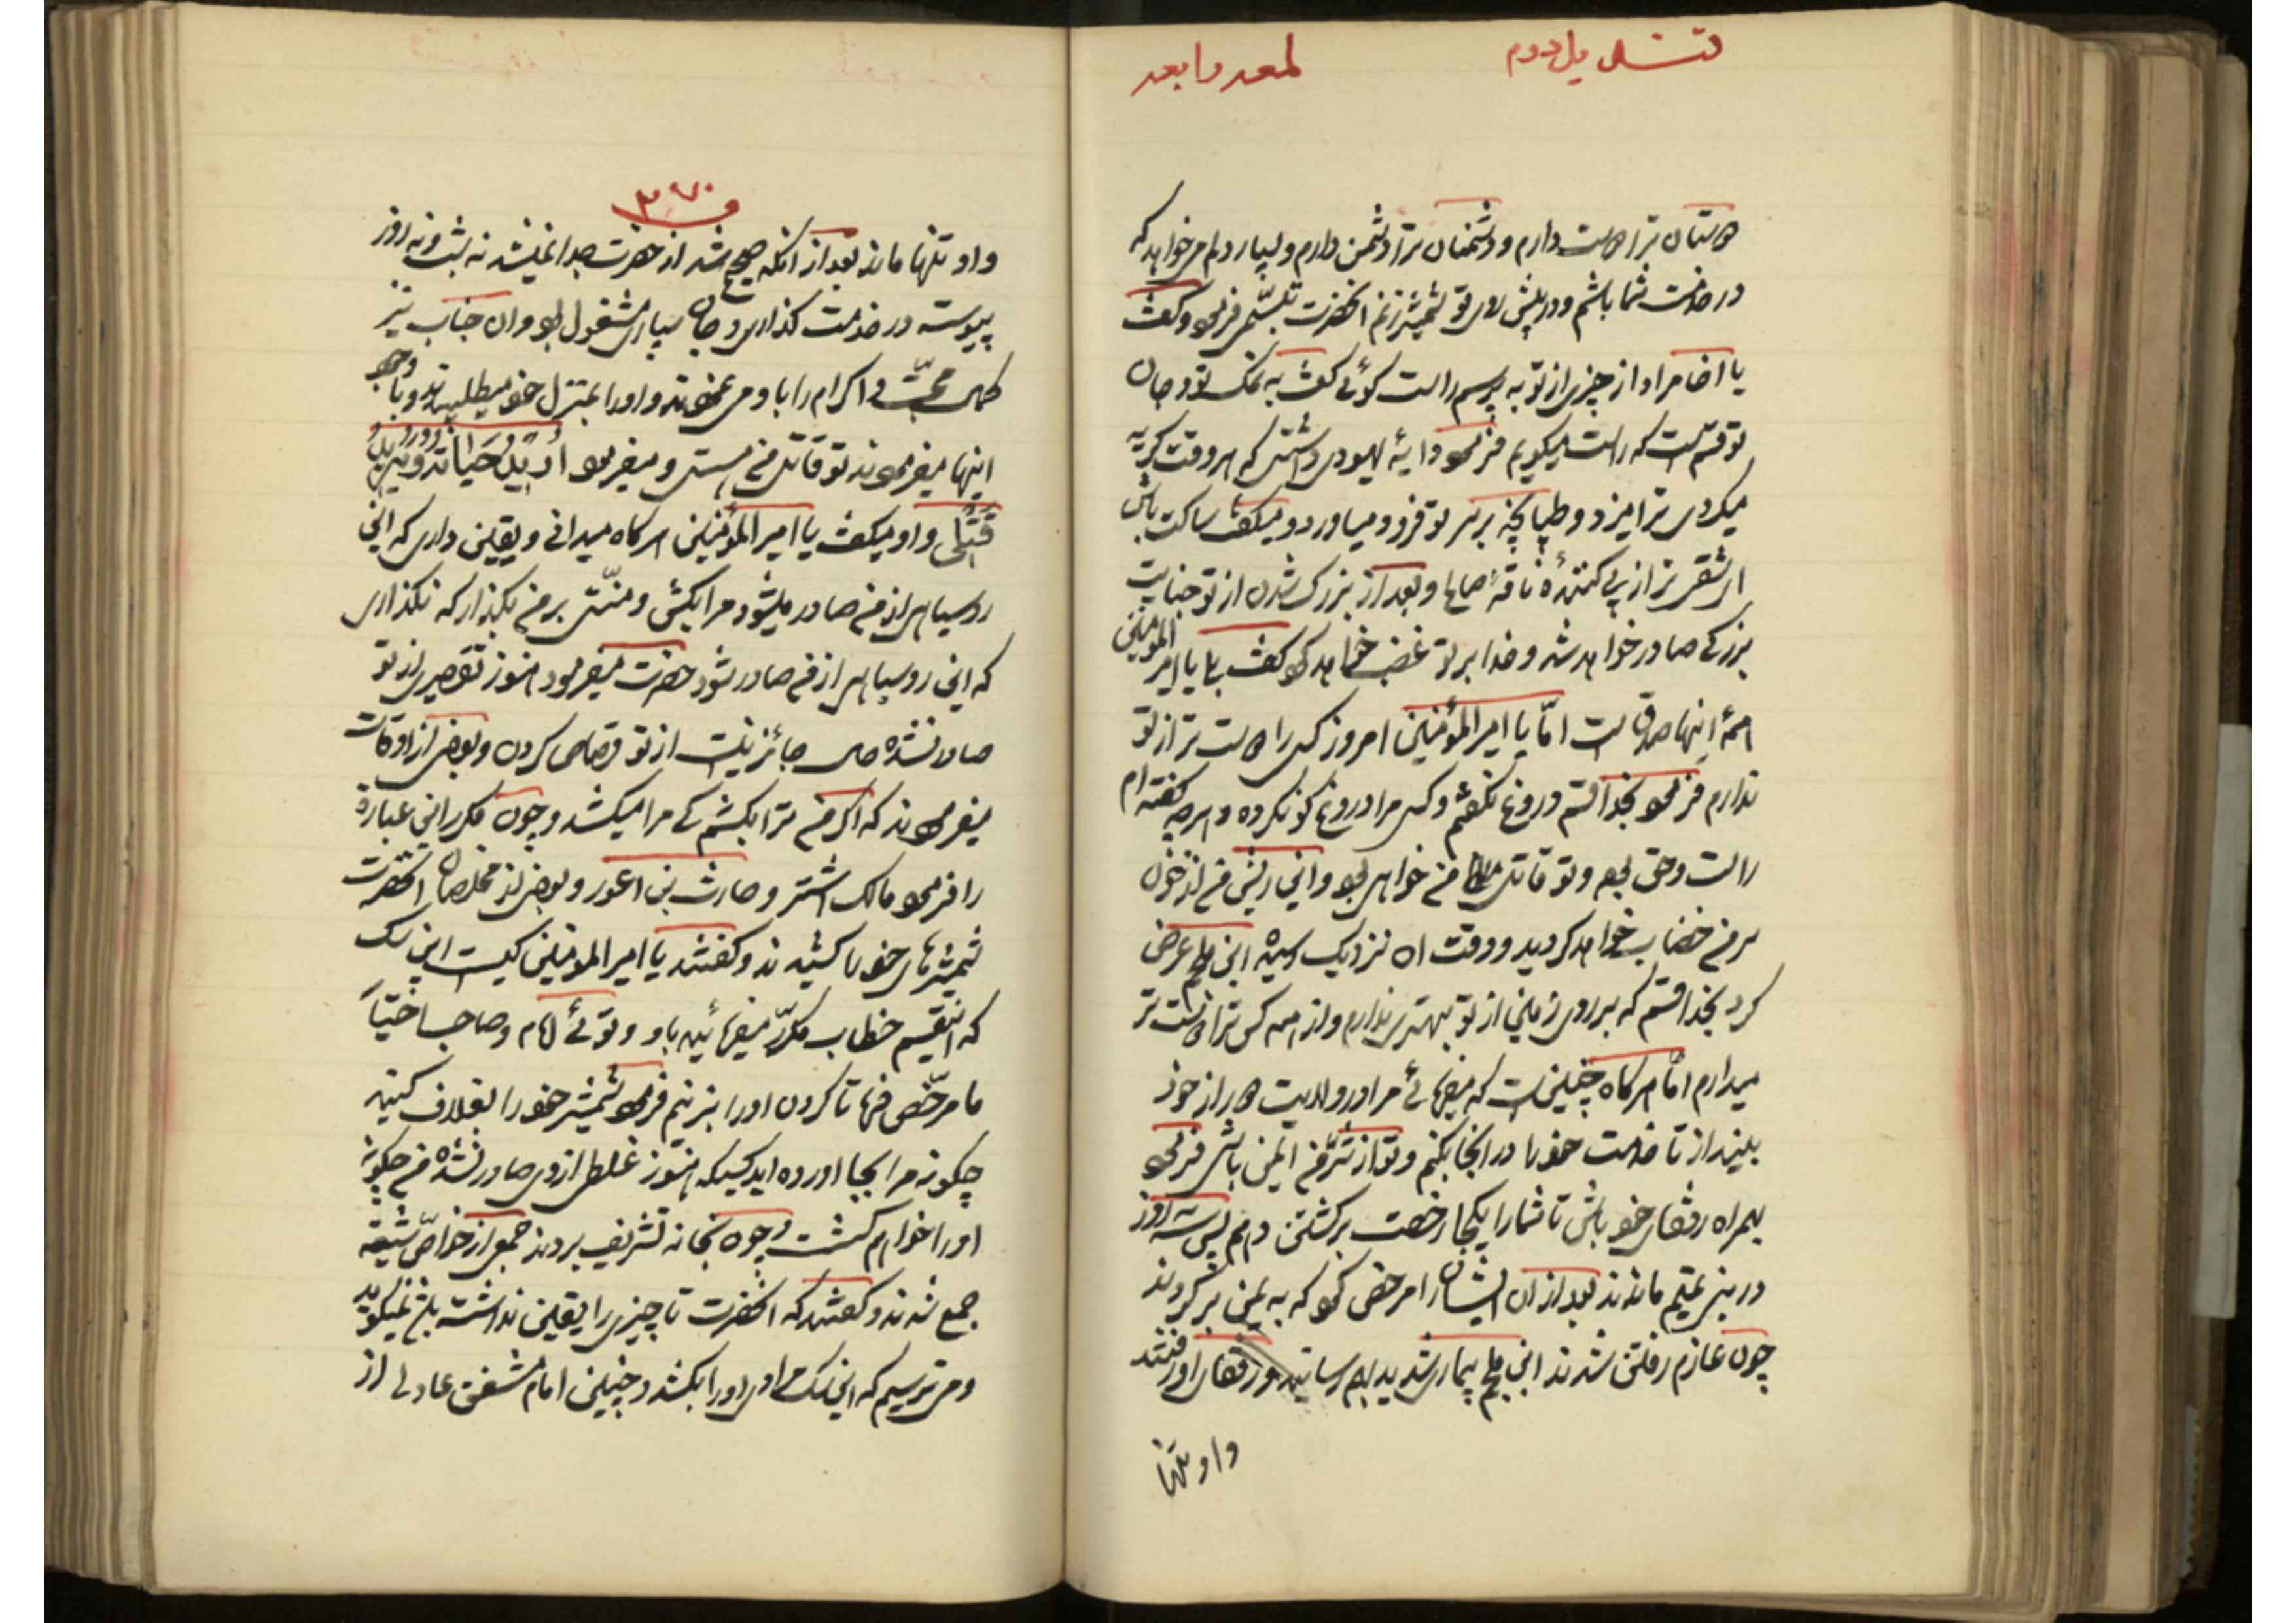 قندیل دوم لمعه رابعه
دوستان ترا دوست دارم و دشمنان ترا دشمن دارم و بسیار دلم میخواهد که
در خدمت شما باشم و در پیش روی تو شمشیر زنم انحضرت تبسّمی فرمود و گفت
یا اخا مراد از چیزی از تو به پرسم راست گوئی گفت به نمک تو و جان
تو قسم است که راست میگویم فرمود دایهٔ یهودی داشتی که هر وقت گریه
میکردی ترا میزد و طپانچه بر سر تو فرود میاورد و میگفت ساکت باش
ای شقی تر از پی کنندهٔ ناقهٔ صالح و بعد از بزرگ شدن از تو جنایت
بزرگی صادر خواهد شد و خدا بر تو غضب خواهد کرد گفت بلی یا امیر المومنین
همهٔ اینها صدق است امّا یا امیر المؤمنین امروز کسی را دوست تر از تو
ندارم فرمود بخدا قسم دروغ نگفتم و کسی مرا دروغ گو نکرده و هرچه گفته ام
راست و حق بود و تو قاتل من خواهی بود و این ریش من از خون
سر من خضاب خواهد گردید و وقت ان نزدیک رسیده ابن ملجم عرض
کرد بخدا قسم که بر روی زمین از تو بهتری ندارم و از همه کس ترا دوست تر
میدارم امّا هرگاه چنین است که میفرمائی مرا در ولایت دور از خود
بینداز تا خدمت خود را در انجا بکنم و تو از شرّ من ایمن باش فرمود
همراه رفقای خود باش تا شما را یکجا رخصت برگشتن دهم پس سه روز
در بنی تمیم ماندند بعد از ان ایشان را مرخص کرد که به یمن برگردند
چون عازم رفتن شدند ابن ملجم بیماری شدید بهم رسانید و رفقای او رفتند
و او تنها
۳۷۰
و او تنها ماند بعد از انکه صحیح شد از حضرت جدا نمیشد نه شب و نه روز
پیوسته در خدمت گذاری و جان سپاری مشغول بود و ان جناب نیز
کمال محبّت و اکرام را با او می نمودند و او را بمنزل خود میطلبیدند و با وجود
اینها میفرمودند تو قاتل من هستی و میفرمود اُرِیدُ حَیَاتَهُ وَ یُرِیدُ
قَتْلِی و او میگفت یا امیر المؤمنین هرگاه میدانی و یقین داری که این
روسیاهی از من صادر میشود مرا بکش و منّتی بر من بگذار که نگذاری
که این روسیاهی از من صادر شود حضرت میفرمود هنوز تقصیری از تو
صادر نشده جائز نیست از تو قصاص کردن و بعضی از اوقات
میفرمودند که اگر من ترا بکشم کی مرا میکشد و چون مکرر این عبارة
را فرمود مالک اشتر و حارث بن اعور و بعضی از مخلصان انحضرت
شمشیرهای خود را کشیدند و گفتند یا امیر المومنین کیست این سگ
که اینقسم خطاب مکرّر میفرمائید باو و توئی امام و صاحب اختیار
ما مرخّص فرما تا گردن او را بزنیم فرمود شمشیر خود را بغلاف کنید
چگونه مرا بجا اورده اید کسیکه هنوز غلطی از وی صادر نشده من چگونه
او را خواهم کشت و چون بخانه تشریف بردند جمعی از خواصّ شیعه
جمع شدند و گفتند که انحضرت تا چیزی را یقین نداشته باشد نمیگوید
و می ترسیم که این سگ مرادی او را بکشد و چنین امام مشفق عادلی از